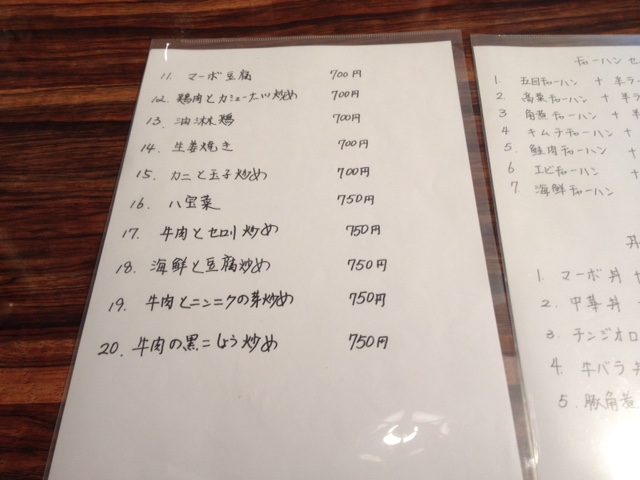 11. マーボ豆腐 700円
12. 鶏肉とカシューナッツ炒め 700円
13. 油淋鶏 700円
14. 生姜焼き 700円
15. カニと玉子炒め 700円
16. 八宝菜 750円
17. 牛肉とセロリ炒め 750円
18. 海鮮と豆腐炒め 750円
19. 牛肉とニンニクの芽炒め 750円
20. 牛肉の黒こしょう炒め 750円
チャーハン セ
1. 五目チャーハン + 半ラー
2. 高菜チャーハン + 半ラ
3. 角煮チャーハン + 半
4. キムチチャーハン +
5. 鮭肉チャーハン +
6. エビチャーハン +
7. 海鮮チャーハン
丼
1. マーボ丼
2. 中華丼
3. チンジオロ
4. 牛バラ丼
5. 豚角煮